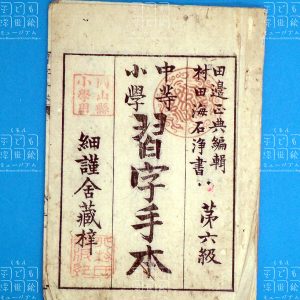 田邉正典編輯
村田海石浄書
苐六級
中等
小學
習字手本
細謹舍藏梓